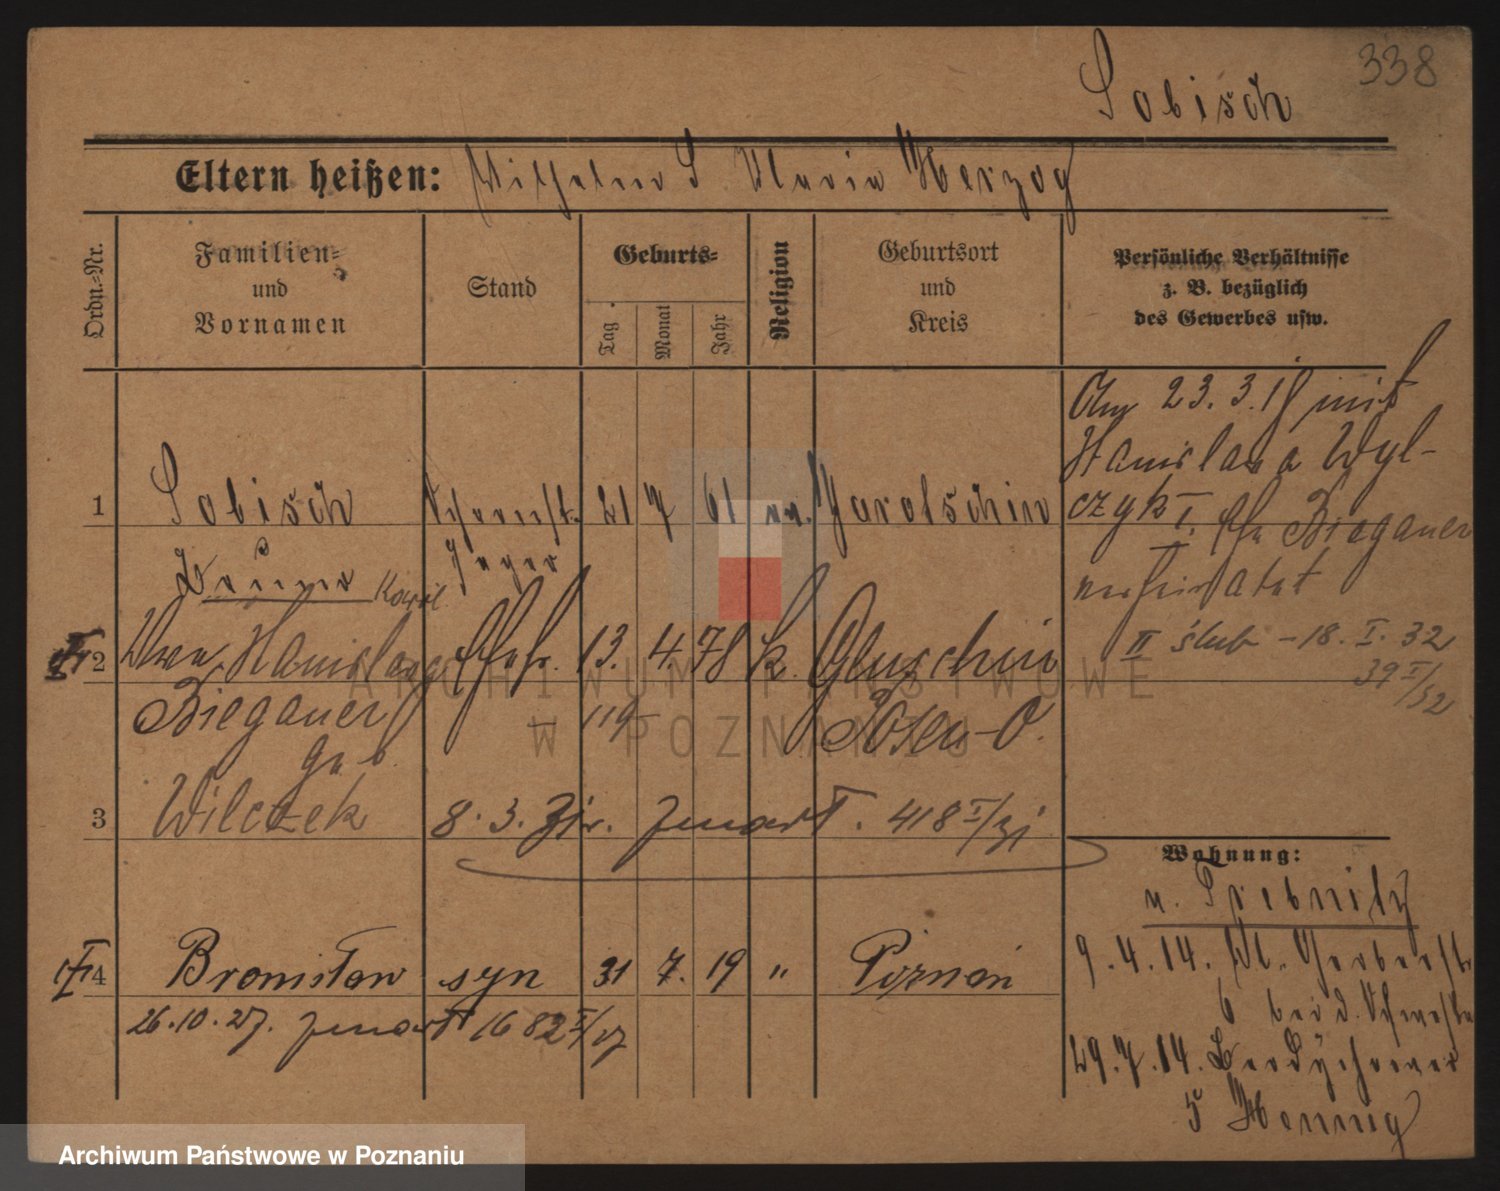 338
Sobisch
Eltern heißen: Wilhelm S. Maria Herzog
Ordn.-Nr.
Familien-
und
Vornamen
Stand
Geburts-
Tag
Monat
Jahr
Religion
Geburtsort
und
Kreis
Persönliche Verhältnisse
z. B. bezüglich
des Gewerbes usw.
Am 23. 3. 18 mit
Stanislawa Wyl-
czyk I. Bieganer
verheiratet
II ślub - 18. I. 32
39 I/32
1 Sobisch 21 7 61 Jarotschin
Bruno
2 Stanislawa 13. 4. 78 k. Gluschin
Bieganer Posen-O.
geb.
Wilczek
3 8. 3. 31r. zmarł. 418 I/31
4 Bronisław syn 31 7. 19 " Poznań
26. 10. 27. zmarł 1682 I/27
Wohnung:
v. Trebnitz
9. 4. 14. Gerberstr
6 bei d. Schwester
29. 7. 14.
5 Hennig
ARCHIWUM PAŃSTWOWE
W POZNANIU
Archiwum Państwowe w Poznaniu